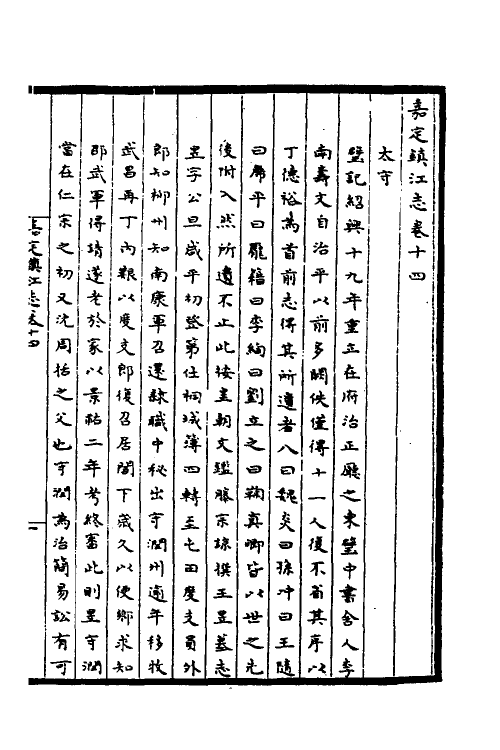 嘉定鎮江志卷十四
太守
壁記紹興十九年重立在府治正廳之東壁中書舍人李
南壽文自治平以前多闕佚僅得十一人復不省其序以
丁德裕為首前志得其所遺者八曰魏炎曰孫冲曰王隨
曰席平曰龐籍曰李絢曰劉立之曰鞠真卿皆以世之先
後附入然所遺不止此按圭朝文鑑滕宗諒撰王昱墓志
昱字公旦咸平初登第任桐城簿四轉至屯田度支員外
郎知柳州知南康軍召還隸職中秘出守潤州逾年移牧
武昌再丁內艱以度支郎復召居閣下歲久以便鄉求知
邵武軍得請遂老於家以景祐二年考終審此則昱守潤
當在仁宗之初又沈周恬之父也守潤為治簡易訟有可
嘉定鎮江志卷十四
一